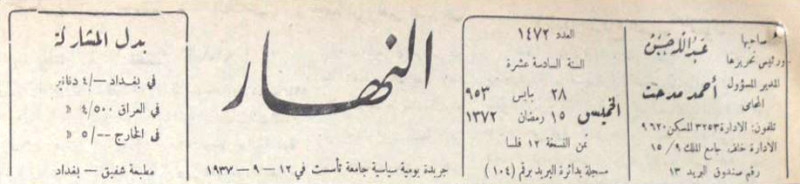 صاحبها
ورئيس تحريرها
المدير المسؤول أحمد مدحت
المحامي
تلفون: الادارة ٣٢٥٣ المسكن ٩٦٢٠
الادارة خلف: جامع الملك ٩ / ١٥
رقم صندوق البريد ١٣
العدد ١٤٧٢
السنة السادسة عشرة
الخميس
٢٨ مايس ٩٥٣
١٥ رمضان ١٣٧٢
ثمن النسخة ١٢ فلسا
مسجلة بدائرة البريد برقم (١٠٤)
النهار
جريدة يومية سياسية جامعة تأسست في ١٢ – ٩ – ١٩٣٧
بدل المشاركة
في بغداد –/٤ دنانير
في العراق ٤/٥٠٠ «
في الخارج –/٥ «
مطبعة شفيق – بغداد